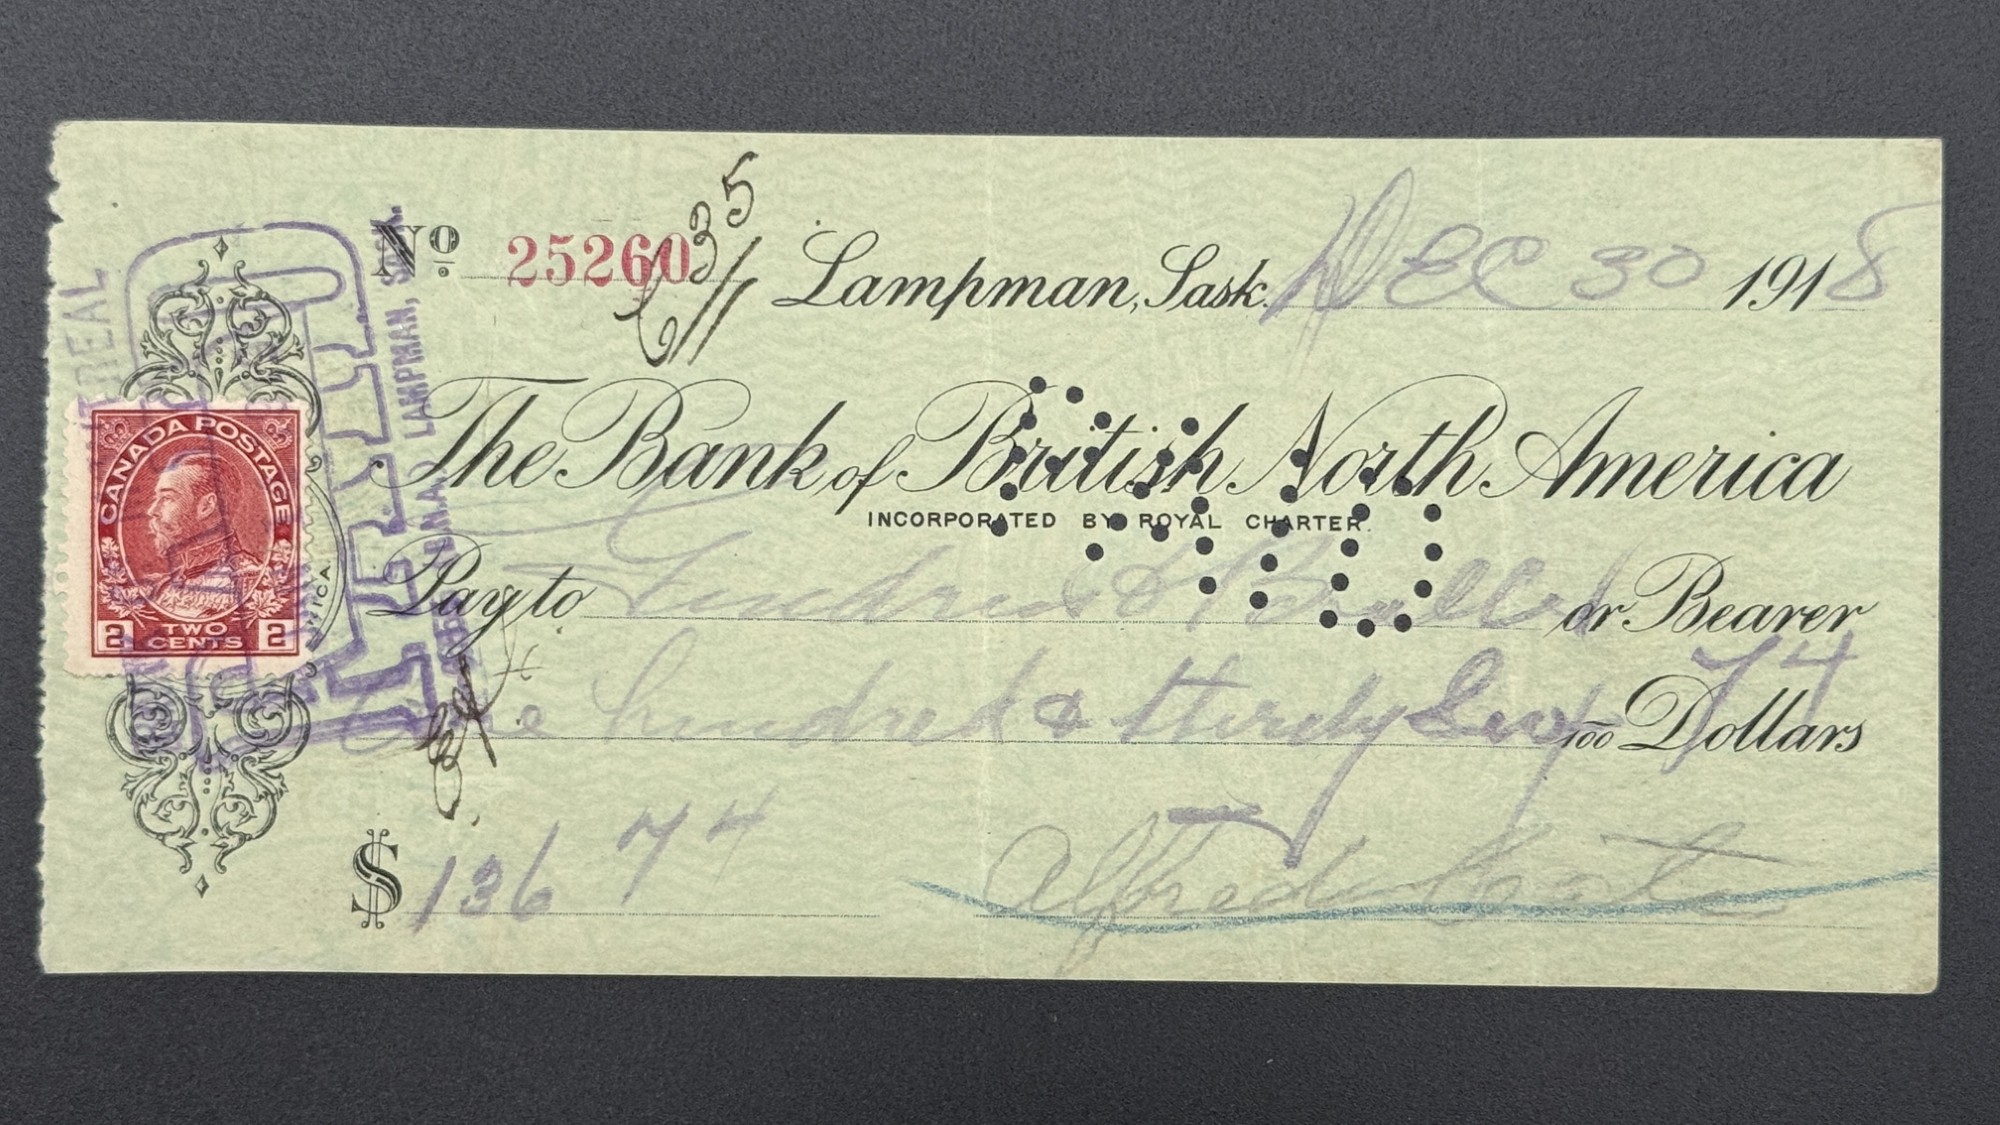 No. 25260
635
Lampman, Sask. Dec 30 1918
The Bank of British North America
INCORPORATED BY ROYAL CHARTER.
Pay to & or Bearer
One hundred & thirty six 74/100 Dollars
$ 136 74
Alfred
CANADA POSTAGE
2 TWO CENTS 2
LAMPMAN, SASK.
PAID